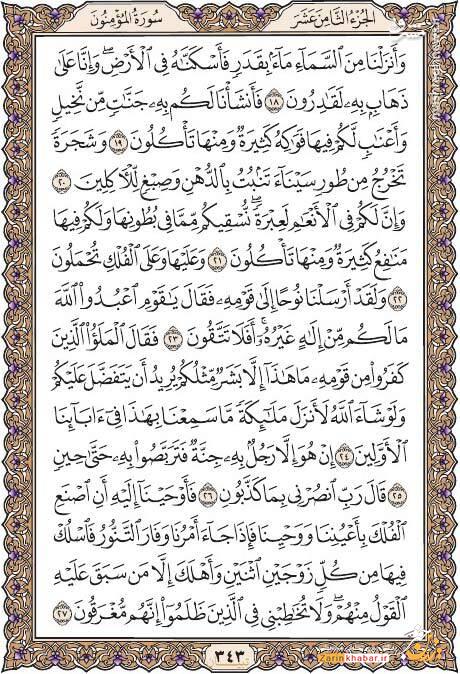 الجزء الثامن عشر
سورة المؤمنون
وَأَنزَلْنَا مِنَ السَّمَاءِ مَاءً بِقَدَرٍ فَأَسْكَنَّاهُ فِي الْأَرْضِ ۖ وَإِنَّا عَلَىٰ
ذَهَابٍ بِهِ لَقَادِرُونَ ١٨ فَأَنشَأْنَا لَكُم بِهِ جَنَّاتٍ مِّن نَّخِيلٍ
وَأَعْنَابٍ لَّكُمْ فِيهَا فَوَاكِهُ كَثِيرَةٌ وَمِنْهَا تَأْكُلُونَ ١٩ وَشَجَرَةً
تَخْرُجُ مِن طُورِ سَيْنَاءَ تَنبُتُ بِالدُّهْنِ وَصِبْغٍ لِّلْآكِلِينَ ٢٠
وَإِنَّ لَكُمْ فِي الْأَنْعَامِ لَعِبْرَةً ۖ نُّسْقِيكُم مِّمَّا فِي بُطُونِهَا وَلَكُمْ فِيهَا
مَنَافِعُ كَثِيرَةٌ وَمِنْهَا تَأْكُلُونَ ٢١ وَعَلَيْهَا وَعَلَى الْفُلْكِ تُحْمَلُونَ
٢٢ وَلَقَدْ أَرْسَلْنَا نُوحًا إِلَىٰ قَوْمِهِ فَقَالَ يَا قَوْمِ اعْبُدُوا اللَّهَ
مَا لَكُم مِّنْ إِلَٰهٍ غَيْرُهُ ۖ أَفَلَا تَتَّقُونَ ٢٣ فَقَالَ الْمَلَأُ الَّذِينَ
كَفَرُوا مِن قَوْمِهِ مَا هَٰذَا إِلَّا بَشَرٌ مِّثْلُكُمْ يُرِيدُ أَن يَتَفَضَّلَ عَلَيْكُمْ
وَلَوْ شَاءَ اللَّهُ لَأَنزَلَ مَلَائِكَةً مَّا سَمِعْنَا بِهَٰذَا فِي آبَائِنَا
الْأَوَّلِينَ ٢٤ إِنْ هُوَ إِلَّا رَجُلٌ بِهِ جِنَّةٌ فَتَرَبَّصُوا بِهِ حَتَّىٰ حِينٍ
٢٥ قَالَ رَبِّ انصُرْنِي بِمَا كَذَّبُونِ ٢٦ فَأَوْحَيْنَا إِلَيْهِ أَنِ اصْنَعِ
الْفُلْكَ بِأَعْيُنِنَا وَوَحْيِنَا فَإِذَا جَاءَ أَمْرُنَا وَفَارَ التَّنُّورُ فَاسْلُكْ
فِيهَا مِن كُلٍّ زَوْجَيْنِ اثْنَيْنِ وَأَهْلَكَ إِلَّا مَن سَبَقَ عَلَيْهِ
الْقَوْلُ مِنْهُمْ ۖ وَلَا تُخَاطِبْنِي فِي الَّذِينَ ظَلَمُوا ۖ إِنَّهُم مُّغْرَقُونَ ٢٧
٣٤٣
Zarinkhabar.ir